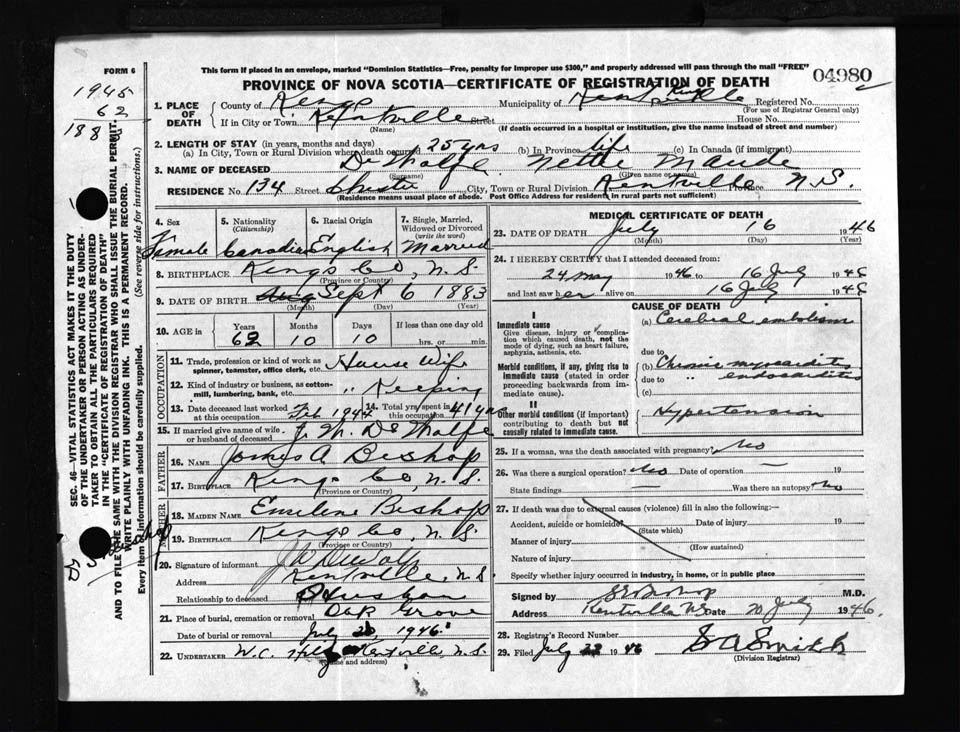 This form if placed in an envelope, marked "Dominion Statistics—Free, penalty for improper use $300," and properly addressed will pass through the mail "FREE"
FORM 6
PROVINCE OF NOVA SCOTIA—CERTIFICATE OF REGISTRATION OF DEATH
04980
1945
62
188
1. PLACE OF DEATH
County of Kings Municipality of Kentville Registered No.
(For use of Registrar General only)
If in City or Town Kentville Street House No.
(Name) (If death occurred in a hospital or institution, give the name instead of street and number)
2. LENGTH OF STAY (in years, months and days)
(a) In City, Town or Rural Division where death occurred 25 yrs (b) In Province life (c) In Canada (if immigrant)
3. NAME OF DECEASED De Wolfe Nettie Maude
(Surname) (Given name or names)
RESIDENCE No. 134 Street Chester City, Town or Rural Division Kentville Province N.S.
(Residence means usual place of abode. Post Office Address for residents in rural parts not sufficient)
4. Sex Female
5. Nationality (Citizenship) Canadian
6. Racial Origin English
7. Single, Married, Widowed or Divorced (write the word) Married
8. BIRTHPLACE Kings Co, N.S.
(Province or Country)
9. DATE OF BIRTH Aug Sept 6 1883
(Month) (Day) (Year)
10. AGE in Years Months Days If less than one day old
62 10 10 hrs. or min.
OCCUPATION
11. Trade, profession or kind of work as spinner, teamster, office clerk, etc. House Wife
12. Kind of industry or business, as cotton-mill, lumbering, bank, etc. " Keeping
13. Date deceased last worked at this occupation Feb 1944
14. Total yrs. spent in this occupation 41 yrs
15. If married give name of wife or husband of deceased J. W. De Wolfe
FATHER
16. NAME James A Bishop
17. BIRTHPLACE Kings Co, N.S.
(Province or Country)
MOTHER
18. MAIDEN NAME Emeline Bishop
19. BIRTHPLACE Kings Co, N.S.
(Province or Country)
20. Signature of informant J W DeWolfe
Address Kentville, N.S
Relationship to deceased Husban
21. Place of burial, cremation or removal Oak Grove
Date of burial or removal July 1946
22. UNDERTAKER W.C. Kentville, N.S
(Name and address)
MEDICAL CERTIFICATE OF DEATH
23. DATE OF DEATH July 16 1946
(Month) (Day) (Year)
24. I HEREBY CERTIFY that I attended deceased from:
24 May 1946 to 16 July 1946
and last saw her alive on 16 July 1946
CAUSE OF DEATH
I
Immediate cause
Give disease, injury or complication which caused death, not the mode of dying, such as heart failure, asphyxia, asthenia, etc.
(a) Cerebral embolism
due to
Morbid conditions, if any, giving rise to immediate cause (stated in order proceeding backwards from immediate cause).
(b) Chronic myocarditis
due to " endocarditis
(c)
II
Other morbid conditions (if important) contributing to death but not causally related to immediate cause.
Hypertension
25. If a woman, was the death associated with pregnancy? No
26. Was there a surgical operation? No Date of operation — 19
State findings — Was there an autopsy? No
27. If death was due to external causes (violence) fill in also the following:—
Accident, suicide or homicide? Date of injury 19
(State which)
Manner of injury
(How sustained)
Nature of injury
Specify whether injury occurred in industry, in home, or in public place
Signed by Bishop M.D.
Address Kentville NS Date 20 July 1946.
28. Registrar's Record Number
29. Filed July 1946 S A Smith
(Division Registrar)
SEC. 46—VITAL STATISTICS ACT MAKES IT THE DUTY OF THE UNDERTAKER OR PERSON ACTING AS UNDERTAKER TO OBTAIN ALL THE PARTICULARS REQUIRED IN THE "CERTIFICATE OF REGISTRATION OF DEATH" AND TO FILE THE SAME WITH THE DIVISION REGISTRAR WHO SHALL ISSUE THE BURIAL PERMIT.
WRITE PLAINLY WITH UNFADING INK. THIS IS A PERMANENT RECORD.
Every item of information should be carefully supplied. (See reverse side for instructions.)